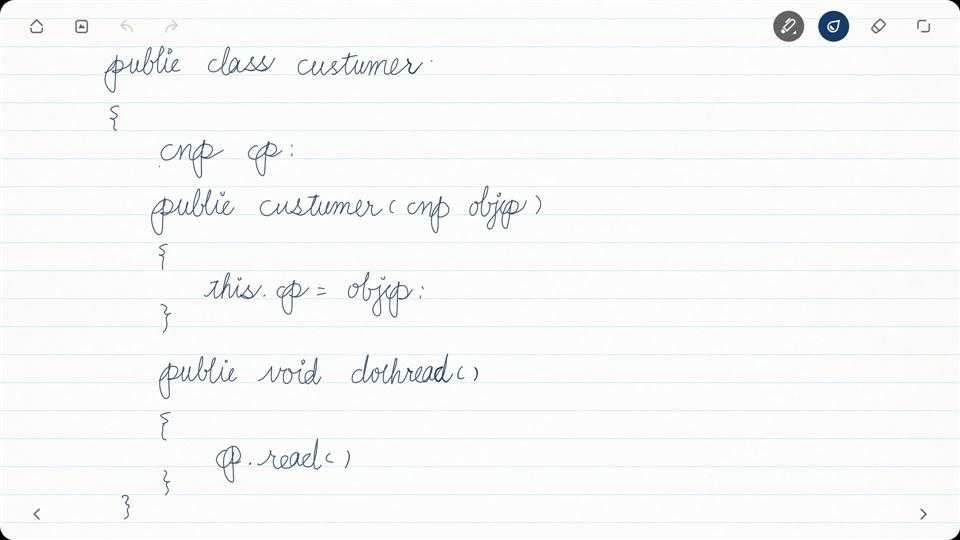 public class custumer
{
cnp cp:
public custumer(cnp objcp)
{
this.cp = objcp:
}
public void dothread()
{
cp.read()
}
}